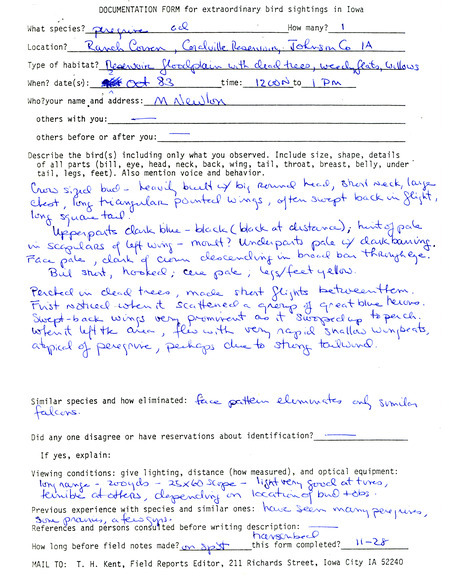 DOCUMENTATION FORM for extraordinary bird sightings in Iowa
What species? peregrine ad How many? 1
Location? Ranch Corner, Coralville Reservoir, Johnson Co IA
Type of habitat? Reservoir floodplain with dead trees, weedy flats, willows
When? date(s): Oct 83 time: 1200N to 1 PM
Who? your name and address: M Newlon
others with you: —
others before or after you: —
Describe the bird(s) including only what you observed. Include size, shape, details
of all parts (bill, eye, head, neck, back, wing, tail, throat, breast, belly, under
tail, legs, feet). Also mention voice and behavior.
Crow sized bird - heavily built w/ big round head, short neck, large
chest, long triangular pointed wings, often swept back in flight,
long square tail.
Upperparts dark blue-black (black at distance), hint of pale
in scapulars of left wing - moult? Underparts pale w/ dark barring.
Face pale, dark of crown descending in broad bar through eye.
Bill short, hooked; cere pale, legs/feet yellow.
Perched in dead trees, made short flights between them.
First noticed when it scattered a group of great blue herons.
Swept-back wings very prominent as it swooped up to perch.
When it left the area, flew with very rapid shallow wingbeats,
atypical of peregrine, perhaps due to strong tailwind.
Similar species and how eliminated: face pattern eliminates only similar
falcons.
Did any one disagree or have reservations about identification? —
If yes, explain:
Viewing conditions: give lighting, distance (how measured), and optical equipment:
long range - 200yds - 25x60 scope - light very good at times,
terrible at others, depending on location of bird & obs.
Previous experience with species and similar ones: have seen many peregrines,
some prairies, a few gyrs.
References and persons consulted before writing description: —
How long before field notes made? on spot this form completed? 11-28
MAIL TO: T. H. Kent, Field Reports Editor, 211 Richards Street, Iowa City IA 52240